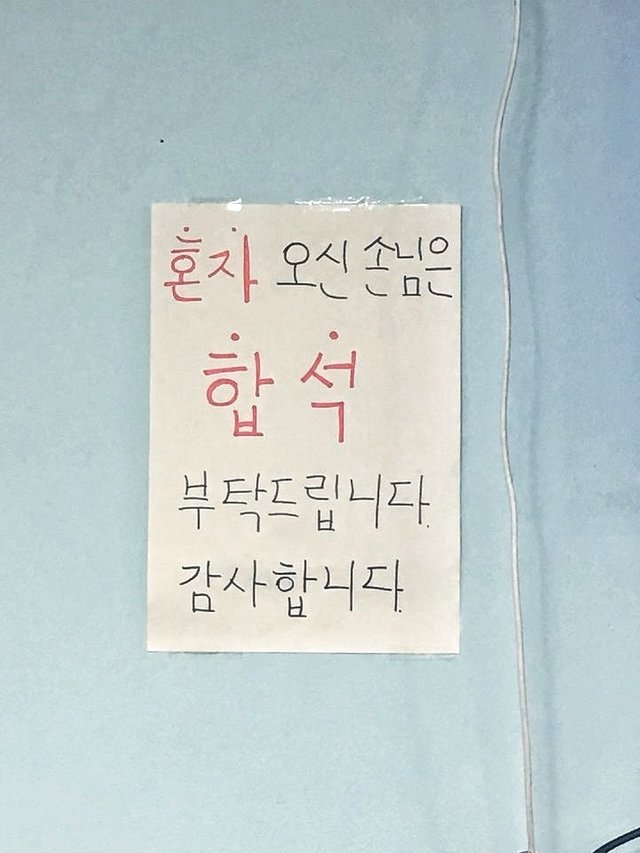 혼자 오신 손님은
합 석
부탁드립니다.
감사합니다.